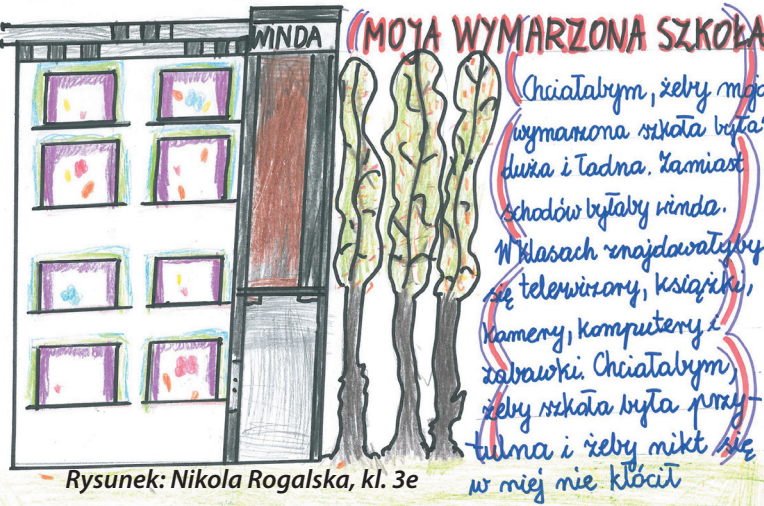 WINDA
MOJA WYMARZONA SZKOŁA
Chciałabym, żeby moja
wymarzona szkoła była
duża i ładna. Zamiast
schodów byłaby winda.
W klasach znajdowałyby
się telewizory, książki,
kamery, komputery i
zabawki. Chciałabym,
żeby szkoła była przy-
tulna i żeby nikt się
w niej nie kłócił
Rysunek: Nikola Rogalska, kl. 3e